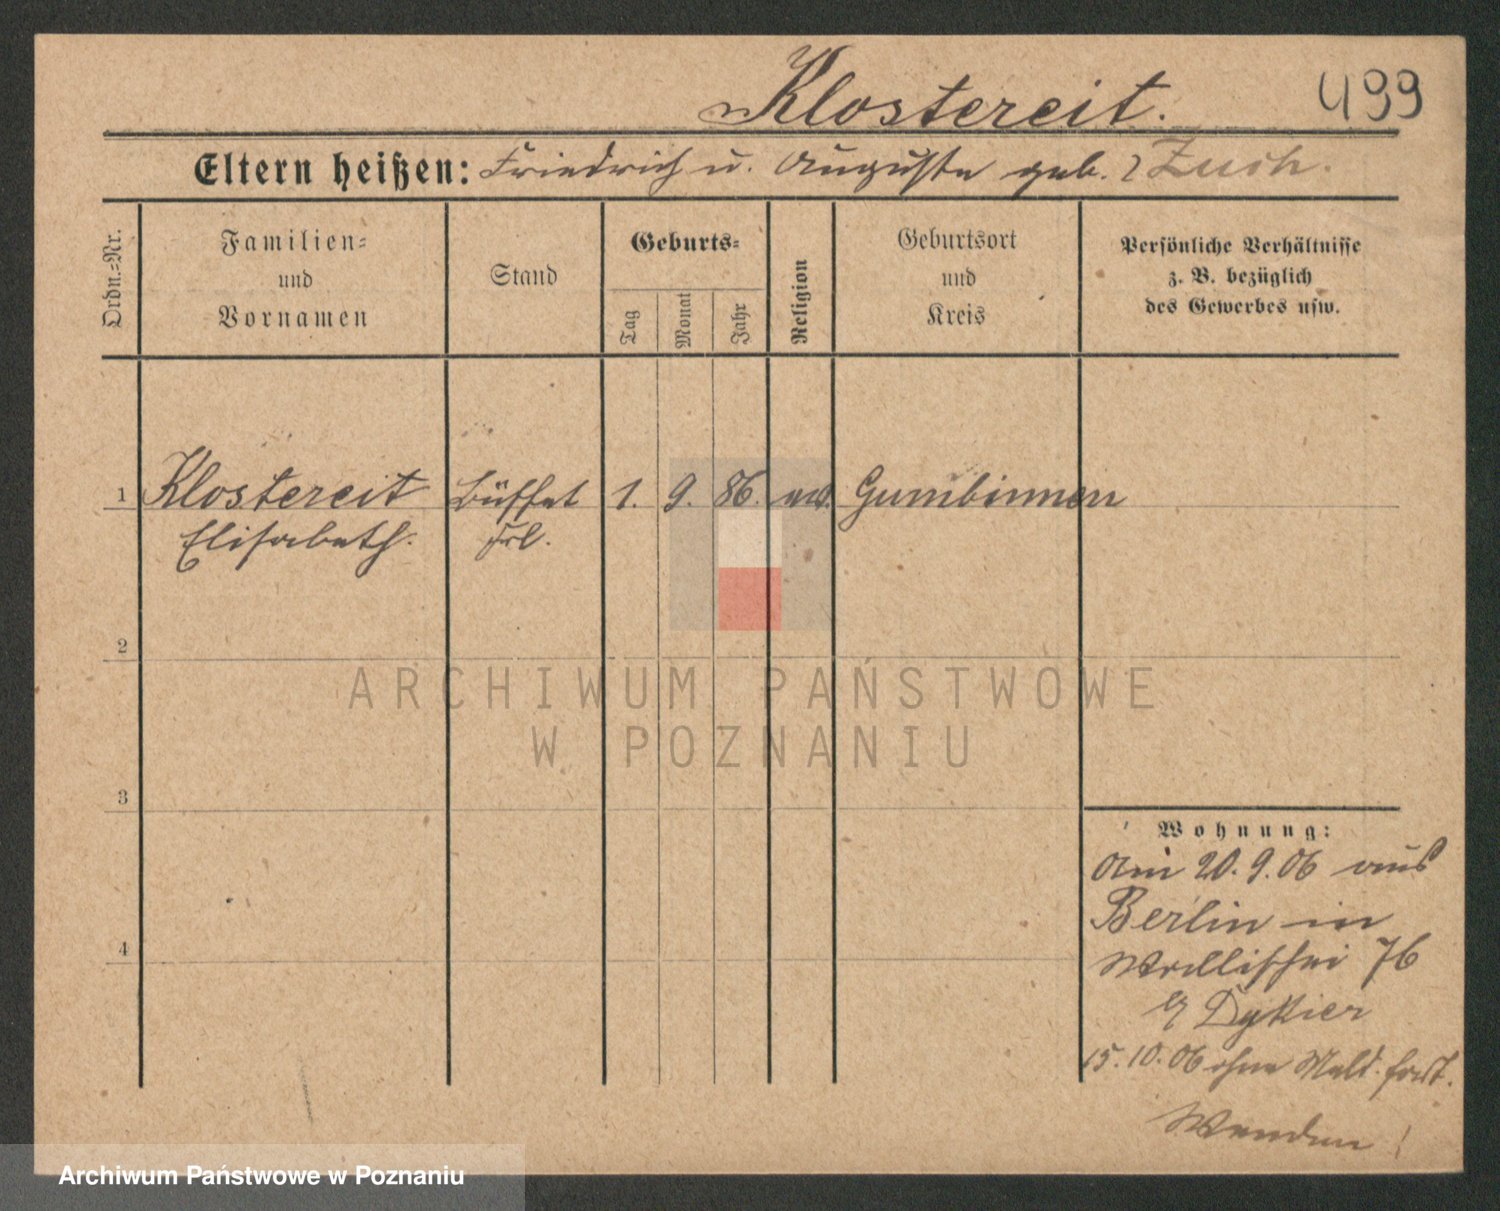 Klostereit.
499
Eltern heißen: Friedrich u. Auguste geb. Zuch.
Ordn.=Nr.
Familien=
und
Vornamen
Stand
Geburts=
Tag
Monat
Jahr
Religion
Geburtsort
und
Kreis
Persönliche Verhältnisse
z. B. bezüglich
des Gewerbes usw.
1 Klostereit Büffet 1. 9. 86. Gumbinnen
Elisabeth. Frl.
2
3
4
Wohnung:
Am 20. 9. 06 aus
Berlin in
Wallischei 76
Dykier
15. 10. 06 ohne Meld. fort.
Wenden!
ARCHIWUM PAŃSTWOWE
W POZNANIU
Archiwum Państwowe w Poznaniu